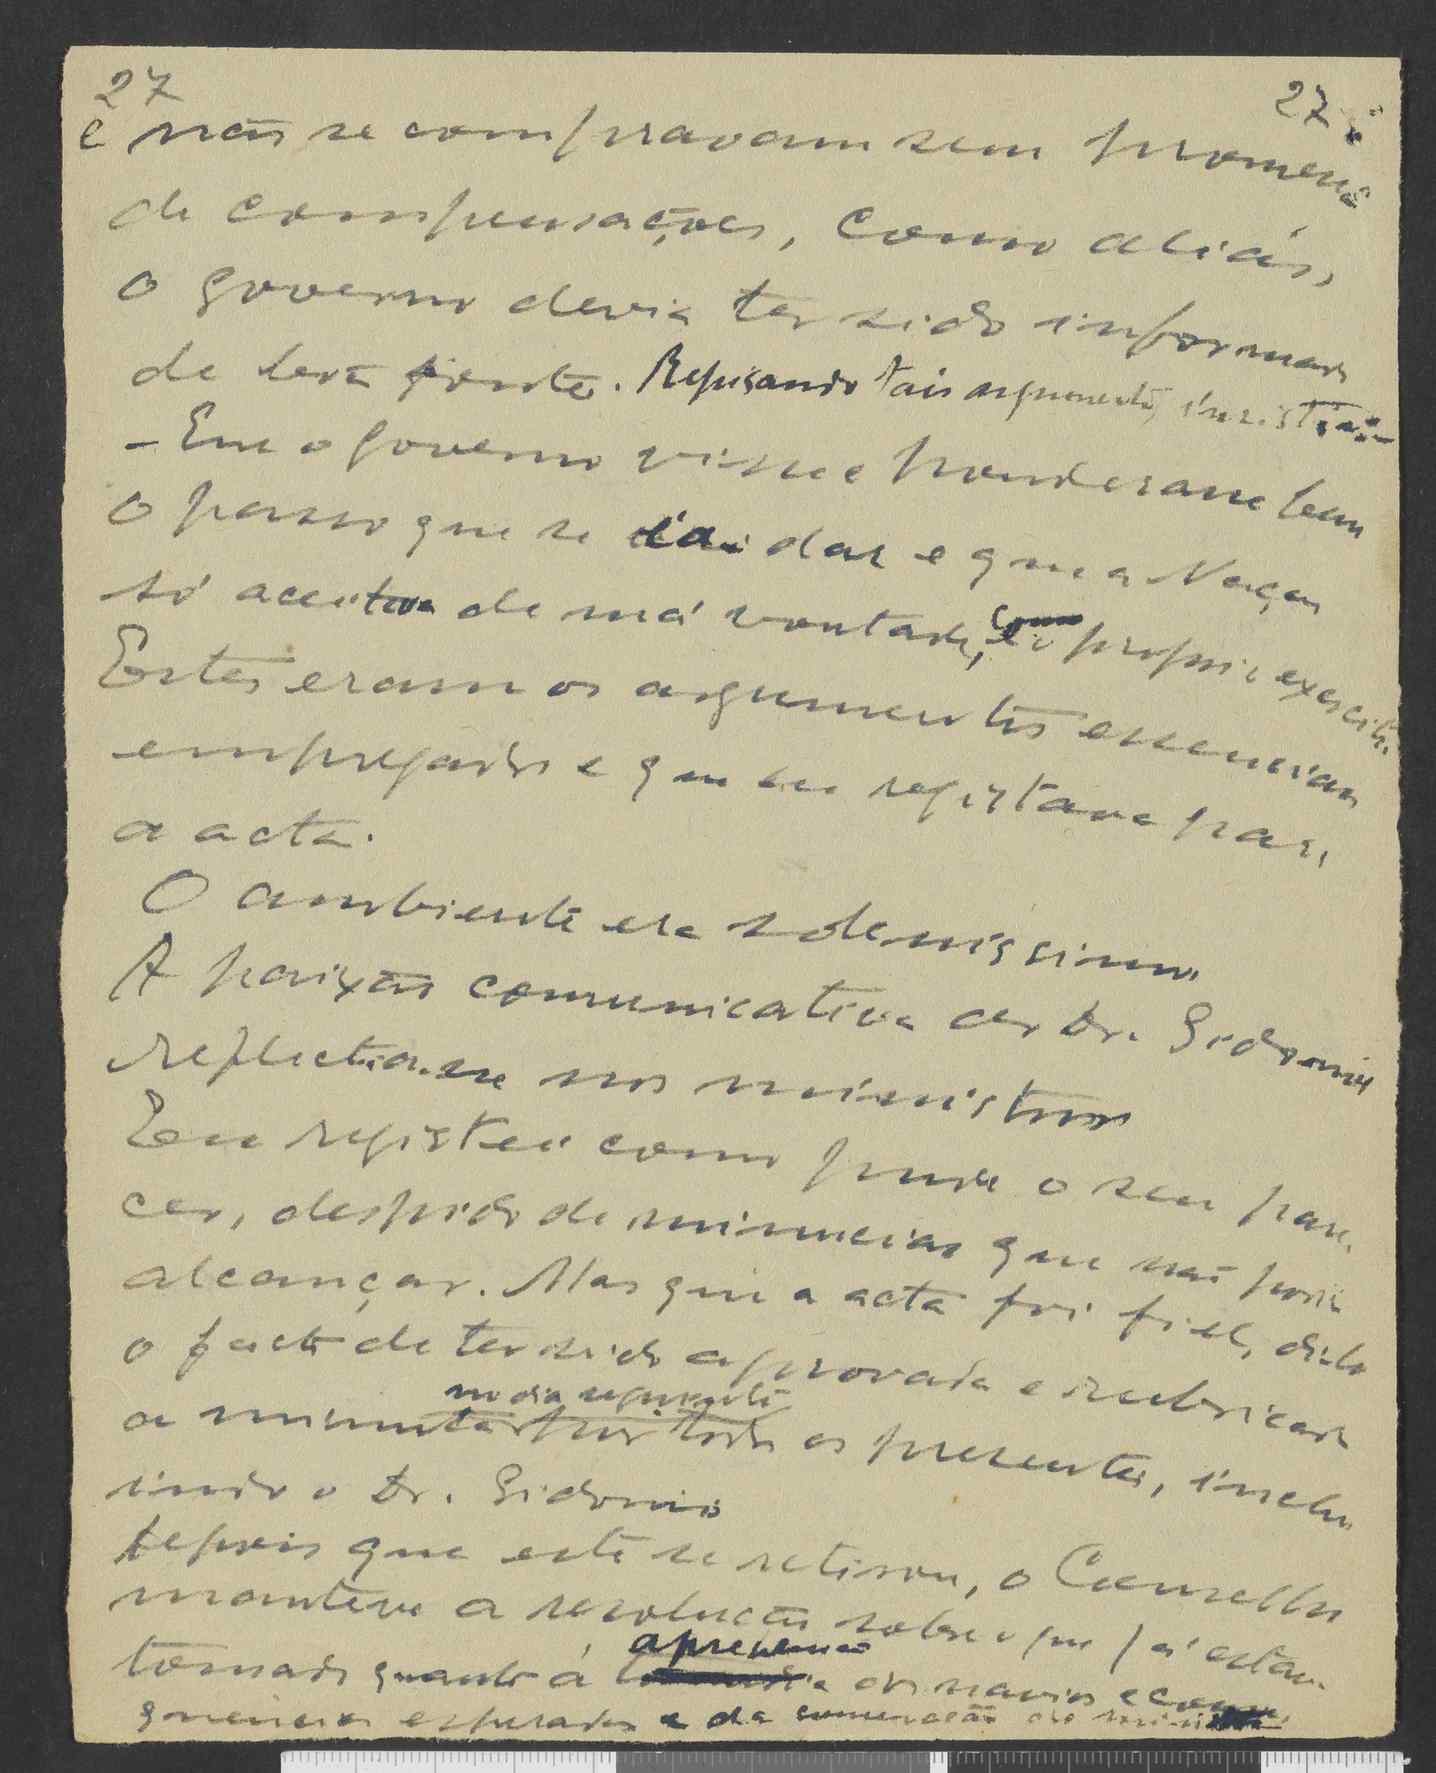 27 27
e não se compravam sem promessa
de compensações, como aliás,
o governo devia ter sido informado
de boa fonte. Repisando tais argumentos, insistia:
– Que o governo visse e ponderasse bem
o passo que se ia dar e que a Nação
só aceitava de má vontade, como o proprio exercito.
Estes eram os argumentos essenciais
empregados e que eu registava para
a acta.
O ambiente era solenissimo.
A paixão comunicativa do Dr. Sidonio
reflectia-se nos ministros
Eu registei como pude o seu pare-
cer, despido de minucias que não podia
alcançar. Mas que a acta foi fiel, di-lo
o facto de ter sido aprovada e rubricada
no dia seguinte
a minuta por todos os presentes, inclu-
indo o Dr. Sidonio
Depois que este se retirou, o Conselho
manteve a resolução sobre o que já estava
apreensão
tomado quanto á dos navios e conse-
quencias esperadas e da